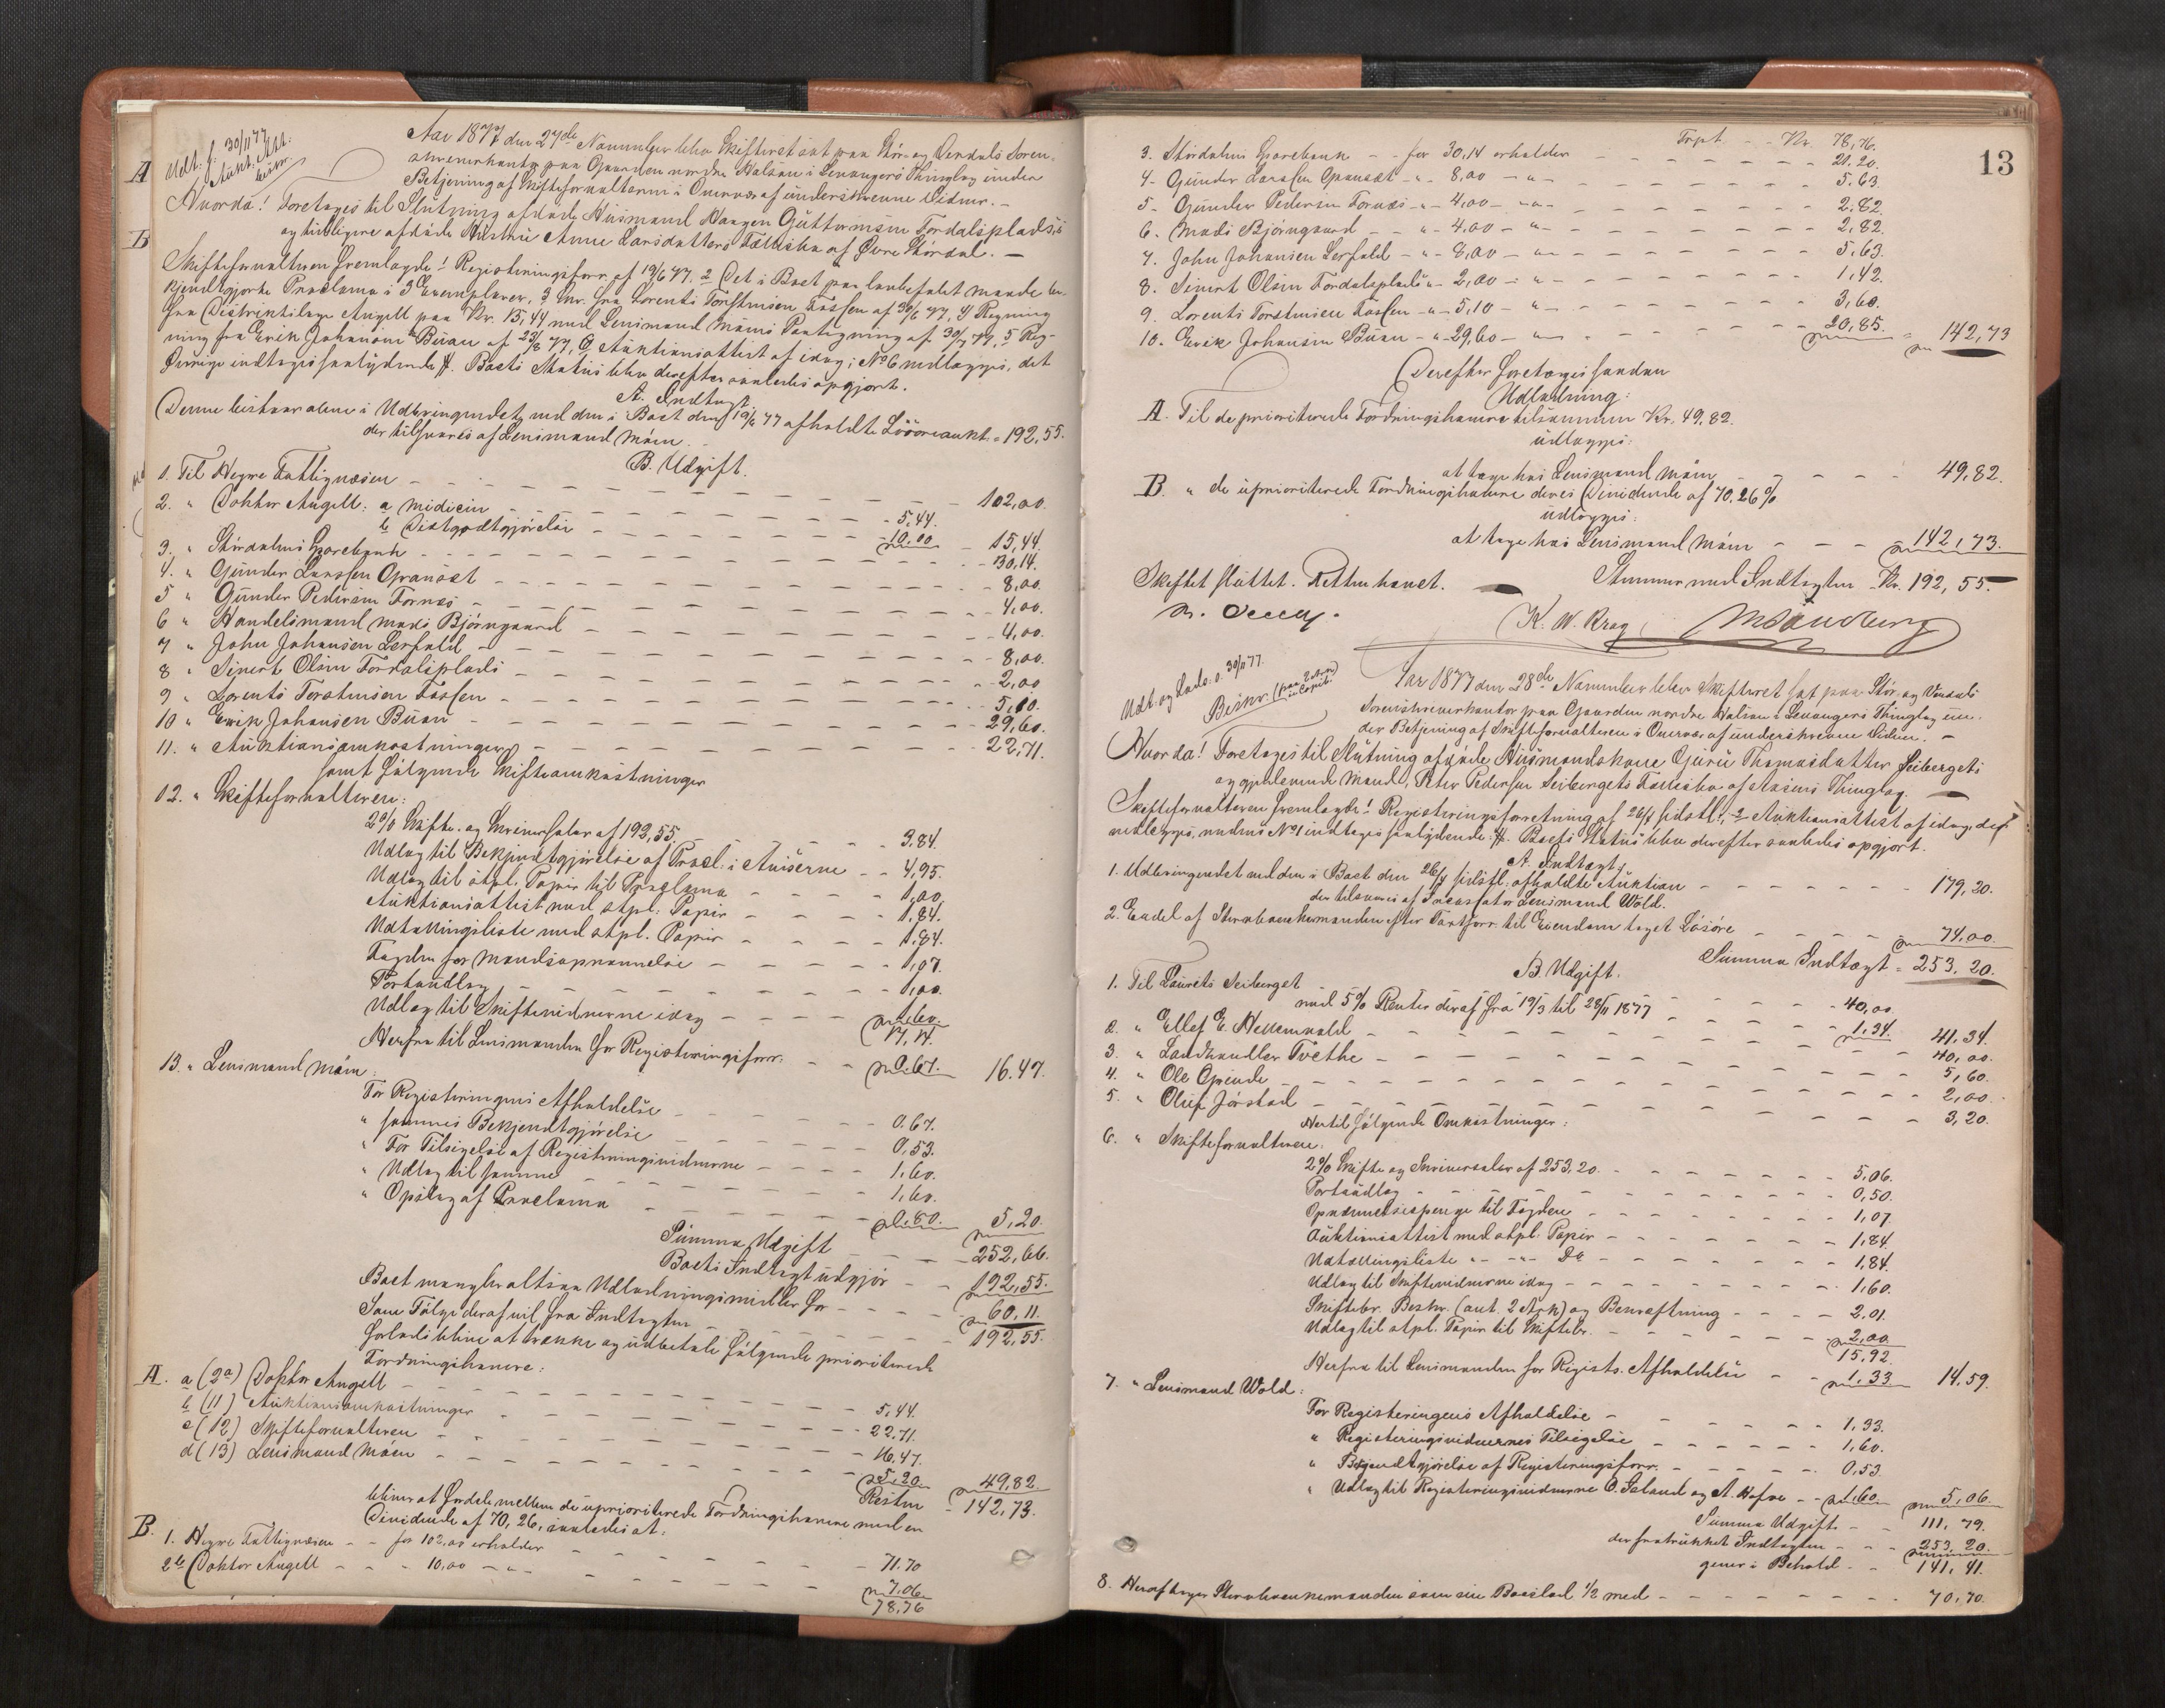 A
Udt. f. 30/11 77
Aukt. Att.
Aar 1877 den 27de November blev Skifteret sat paa Stør- og Værdals Soren-
skriverkontor paa Gaarden nordre Halsan i Levangers Thinglag under
Betjening af Skifteforvalteren i Overvær af underskrevne Vidner. –
Hvorda! Foretages til Slutning afdøde Husmand Haagen Guttormsen Fordalsplads's
og tidligere afdøde Hustru Anne Larsdatters Fællesbo af Øvre Stördal. –
B
Skifteforvalteren fremlagde 1 Registreringsforr. af 19/6 77. 2 Det i Boet paa lovbefalet Maade be-
kjendtgjorte Proclama i 3 Exemplarer, 3 Skr. fra Lorents Torstensen Fossen af 30/6 77, 4 Regning
fra Distriktslæge Angell paa Kr. 15,44 med Lensmand Måms Paategning af 30/7 77, 5 Reg-
ning fra Erik Johansen Buan af 23/8 77, 6 Auktionsattest af idag; No 6 vedlægges, det
Øvrige indtages saalydende #. Boets Status blev derefter saaledes opgjort.
A. Indtægt.
Denne bestaar alene i Udbringendet ved den i Boet den 19/6 77 afholdte Løsøreaukt. = 192,55.
der tilsvares af Lensmand Måm.
B. Udgift.
1. Til Hegre Fattigvæsen – 102,00.
2. " Doktor Angell: a Medicin – 5,44.
b Diætgodtgjørelse – 10.00 – 15,44.
3. " Stördalens Sparebank – 30,14.
4. " Gunder Larssen Opauset – 8,00.
5 " Gunder Pedersen Fornes – 4,00.
6 " Handelsmand Mads Björngaard – 4,00.
7 " John Johansen Lerfald – 8,00.
8 " Sivert Olsen Fordalsplads – 2,00
9 " Lorents Torstensen Fossen – 5,10.
10 " Erik Johansen Buan – 29,60.
11. " Auktionsomkostninger – 22,71.
samt følgende Skifteomkostninger
12. " Skifteforvalteren:
2% Skifte- og Skriversalær af 192,55 – 3.84.
Udlæg til Bekjendtgjørelse af Procl. i Aviserne – 4,95.
Udlæg til stpl. Papir til Proclama – 1,00
Auktionsattest med stpl. Papir – 1,84.
Udtællingsliste med stpl. Papir – 1,84.
Fogden for Mandsopnævnelse – 1,07.
Portoudlæg – 1,00.
Udlæg til Skiftevidnerne idag – 1,60.
17,14.
Herfra til Lensmanden for Registreringsforr. – 0.67. 16.47.
13. " Lensmand Måm:
For Registreringens Afholdelse – 0.67.
" sammes Bekjendtgjørelse – 0,53.
" For Tilsigelse af Registreringsvidnerne – 1,60.
" Udlæg til samme – 1,60.
" Opslag af Proclama – 0.80. 5,20.
Summa Udgift – 252,66.
Boets Indtægt udgjør – 192,55.
Boet mangler altsaa Udlodningsmidler for – 60,11.
Som Følge deraf vil fra Indtægten – 192,55.
forlods blive at trække og udbetale følgende prioriterede
Fordringshavere:
A. a (2a) Doktor Angell – 5,44.
b (11) Auktionsomkostninger – 22.71.
c (12) Skifteforvalteren – 16,47.
d (13) Lensmand Måm – 5,20. 49,82.
Resten – 142,73.
bliver at fordele mellem de uprioriterede Fordringshavere med en
Dividende af 70,26, saaledes at:
B. 1. Hegre Fattigvæsen – for 102,00 erholder – 71.70
2b Doktor Angell – 10,00 – " – 7,06.
78,76
13
Trpt. – Kr. 78,76.
3. Stördalens Sparebank – for 30,14 erholder – 21.20.
4 – Gunder Larssen Opauset – " – 8,00 – " – 5.63.
5 – Gunder Pedersen Fornes – " – 4,00 – " – 2,82.
6. Mads Björngaard – " – 4,00 – " – 2,82.
7. John Johansen Lerfald – " – 8,00 – " – 5,63.
8. Sivert Olsen Fordalsplads – " – 2,00 – " – 1,42.
9. Lorents Torstensen Fossen – " – 5,10 – " – 3,60.
10. Erik Johansen Buan – " – 29,60 – " – 20,85. = 142,73
Derefter foretoges saadan
Udlodning:
A. Til de prioriterede Fordringshavere tilsammen Kr. 49,82.
udlægges:
at tage hos Lensmand Måm – 49,82.
B. " de uprioriterede Fordringshavere deres Dividende af 70.26%
udlægges:
at tage hos Lensmand Måm – 142,73.
Stemmer med Indtægten – Kr. 192,55
Skiftet sluttet. Retten hævet.
K. W. Krag
Udt. og Lads. 30/11 77.
Beskr. (paa 2 Ark)
Aar 1877 den 28de November blev Skifteret sat paa Stør- og Værdals
Sorenskriverkontor paa Gaarden nordre Halsan i Levangers Thinglag un-
der Betjening af Skifteforvalteren i Overvær af underskrevne Vidner. –
Hvorda! Foretages til Slutning afdøde Husmandskone Guru Thomasdatter Seibergets
og gjenlevende Mand, Peter Pedersen Seibergets Fællesbo af Aasens Thinglag.
Skifteforvalteren fremlagde 1 Registreringsforretning af 26/4 sidstl., 2 Auktionsattest af idag, der
vedlægges, medens No 1 indtages saalydende: #. Boets Status blev derefter saaledes opgjort.
A. Indtægt.
1. Udbringendet ved den i Boet den 26/4 sidstl. afholdte Auktion – 179,20.
der tilsvares af Incassator Lensmand Wold.
2. Endel af Stervboenkemanden efter Taxtforr. til Eiendom taget Løsøre – 74,00.
Summa Indtægt = 253,20.
B Udgift.
1. Til Laurits Seiberget – 40,00.
med 5% Renter deraf fra 19/3 til 28/11 1877 – 1.34. 41,34.
2. " Ellef E. Hellemvald – 40,00.
3. " Landhandler Tvethe – 5,60.
4. " Ole Opende – 2,00.
5. " Oluf Jørstad – 3,20.
Hertil følgende Omkostninger:
6. " Skifteforvalteren:
2% Skifte og Skriversalær af 253,20. – 5,06.
Portoudlæg – 0,50.
Opnævnelsespenge til Fogden – 1,07.
Auktionsattest med stpl. Papir – 1,84.
Udtællingsliste " – " – Do – 1,84.
Udlæg til Skiftevidnerne idag – 1,60.
Skiftebr. Beskr. (ant. 2 Ark) og Bekræftning – 2,01.
Udlæg til stpl. Papir til Skiftebr. – 2,00
15,92.
Herfra til Lensmanden for Registr. Afholdelse – 1.33. 14.59.
7. " Lensmand Wold:
For Registreringens Afholdelse – 1,33.
" Registreringsvidnernes Tilsigelse – 1,60.
" Bekjendtgjørelse af Registreringsforr. – 0,53.
" Udlæg til Registreringsvidnerne O. Seland og A. Hofve – 1,60. 5,06.
Summa Udgift – 111,79.
der fratrukket Indtægten – 253,20.
giver i Behold – 141,41.
8. Heraf tager Stervboenkemanden som sin Boeslod 1/2 med – 70,70.